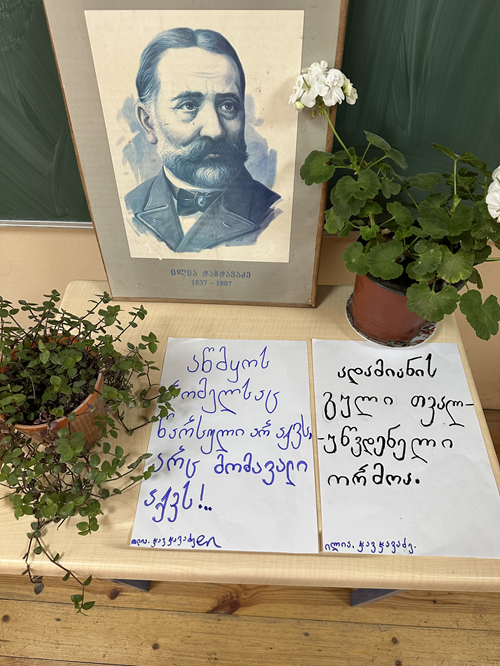 ილია ჭავჭავაძე
1837 - 1907
აწმყოს
რომელსაც
წარსული არ აქვს,
არც მომავალი
აქვს!..
ილია. ჭავჭავაძე
ადამიანის
გული თვალ-
-უწვდენელი
ორმოა.
ილია. ჭავჭავაძე.